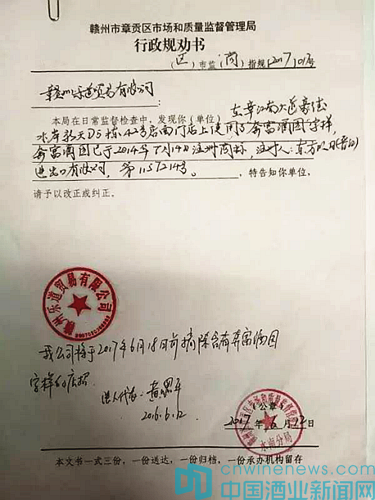 赣州市章贡区市场和质量监督管理局
行政规劝书
(区)市监(商)指规[2017]01号
赣州乐道贸易有限公司:
本局在日常监督检查中,发现你(单位)在章江南大道
水岸新天D5栋42号店面门店上使用了奔富酒园字样,
奔富酒园已于2014年7月14日注册商标,注册人:东方
进出口有限公司,第11572149号。,特告知你单位,
请予以改正或纠正。
赣州乐道贸易有限公司
我公司将于2017年6月18日前清除含有奔富酒园
字样的店招
2016.6.12
(公章)
2017年6月12日
本文书一式三份,一份送达,一份归档,一份承办机构留存
中国酒业新闻网
cnwinenews.com